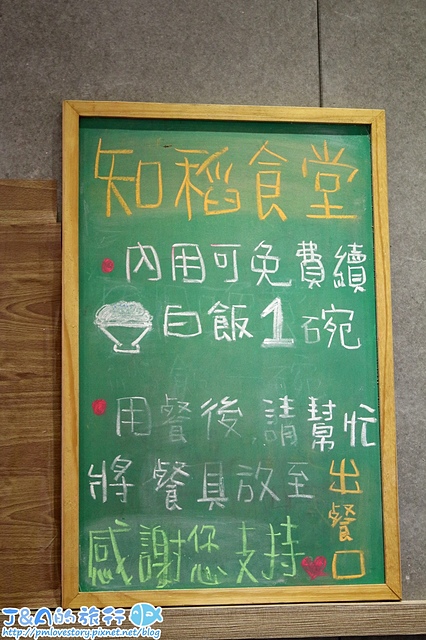 知稻食堂
• 內用可免費續
白飯1碗
• 用餐後,請幫忙
將餐具放至出餐口
感謝您支持
J&A的旅行
http://pmlovestory.pixnet.net/blog